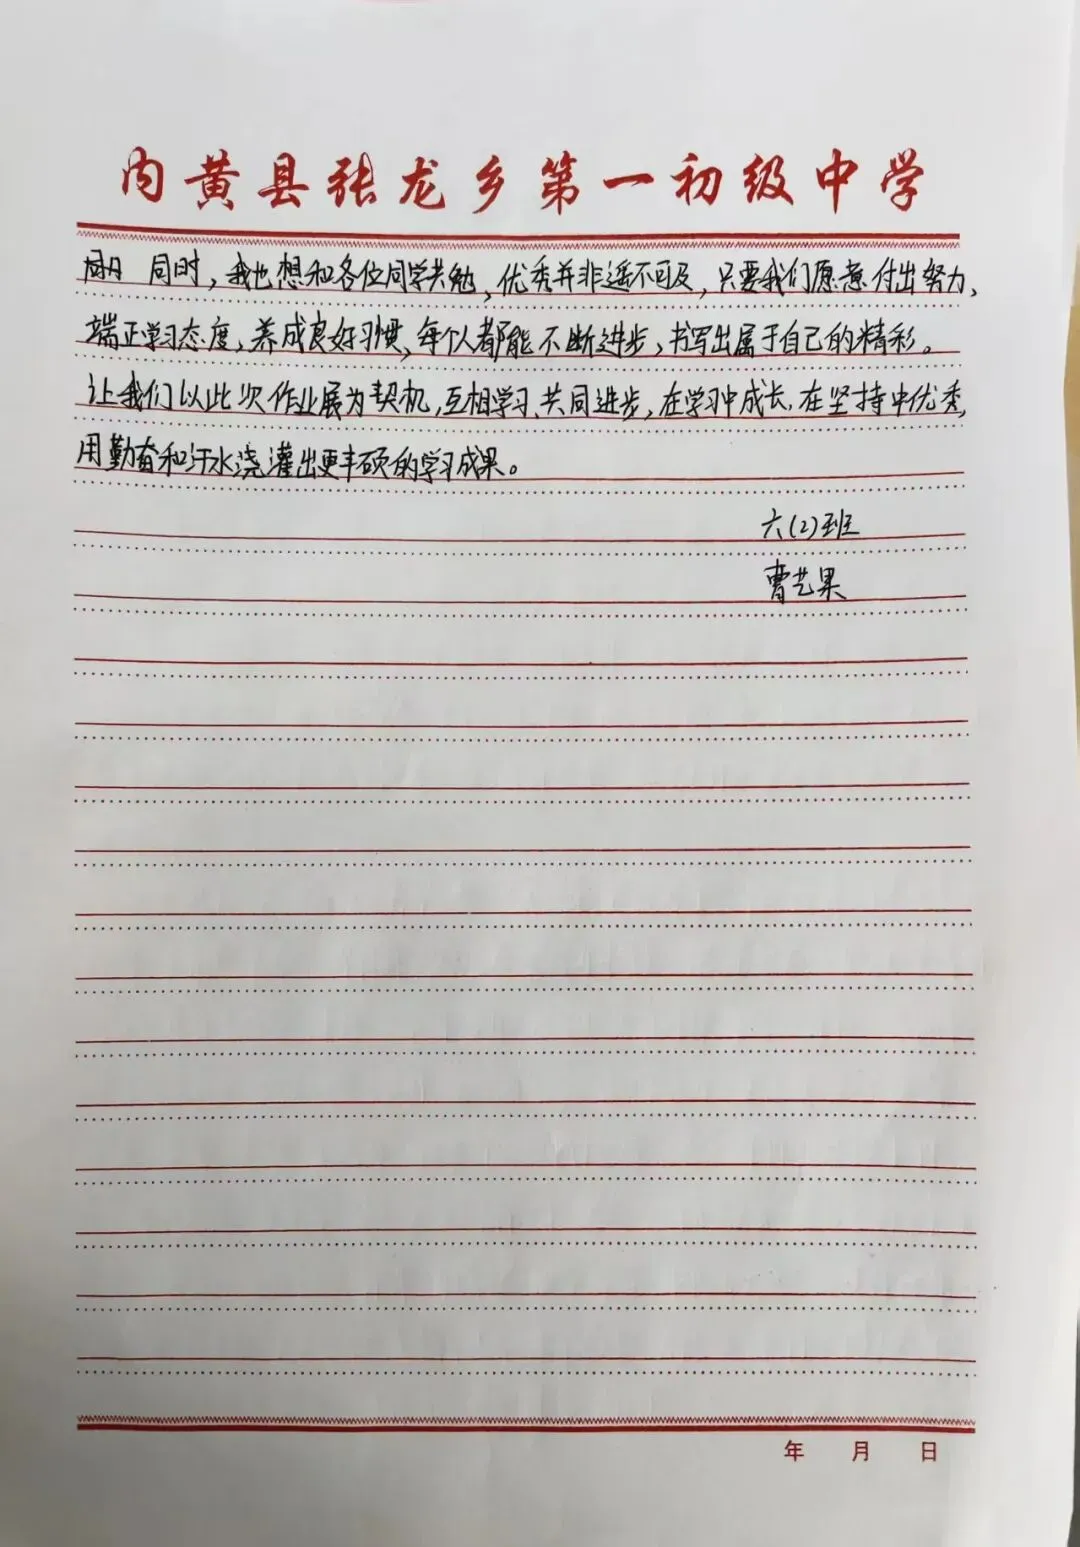 内黄县张龙乡第一初级中学
同时，我也想和各位同学共勉，优秀并非遥不可及，只要我们愿意付出努力、
端正学习态度，养成良好习惯，每个人都能不断进步，书写出属于自己的精彩。
让我们以此次作业展为契机，互相学习、共同进步，在学习中成长，在坚持中优秀，
用勤奋和汗水浇灌出更丰硕的学习成果。
六(2)班
曹艺果
年 月 日